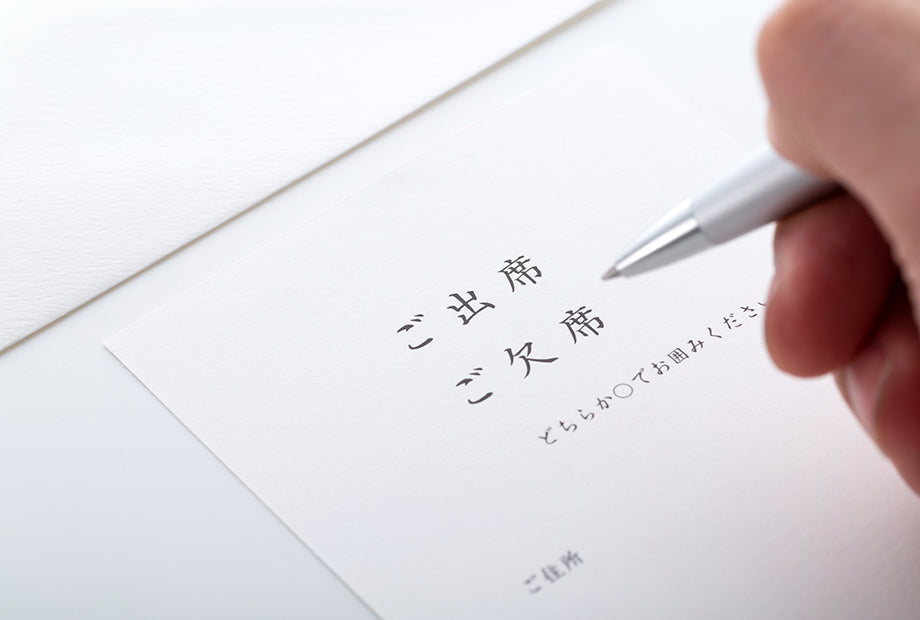 ご出席
ご欠席
どちらか○でお囲みください
ご住所